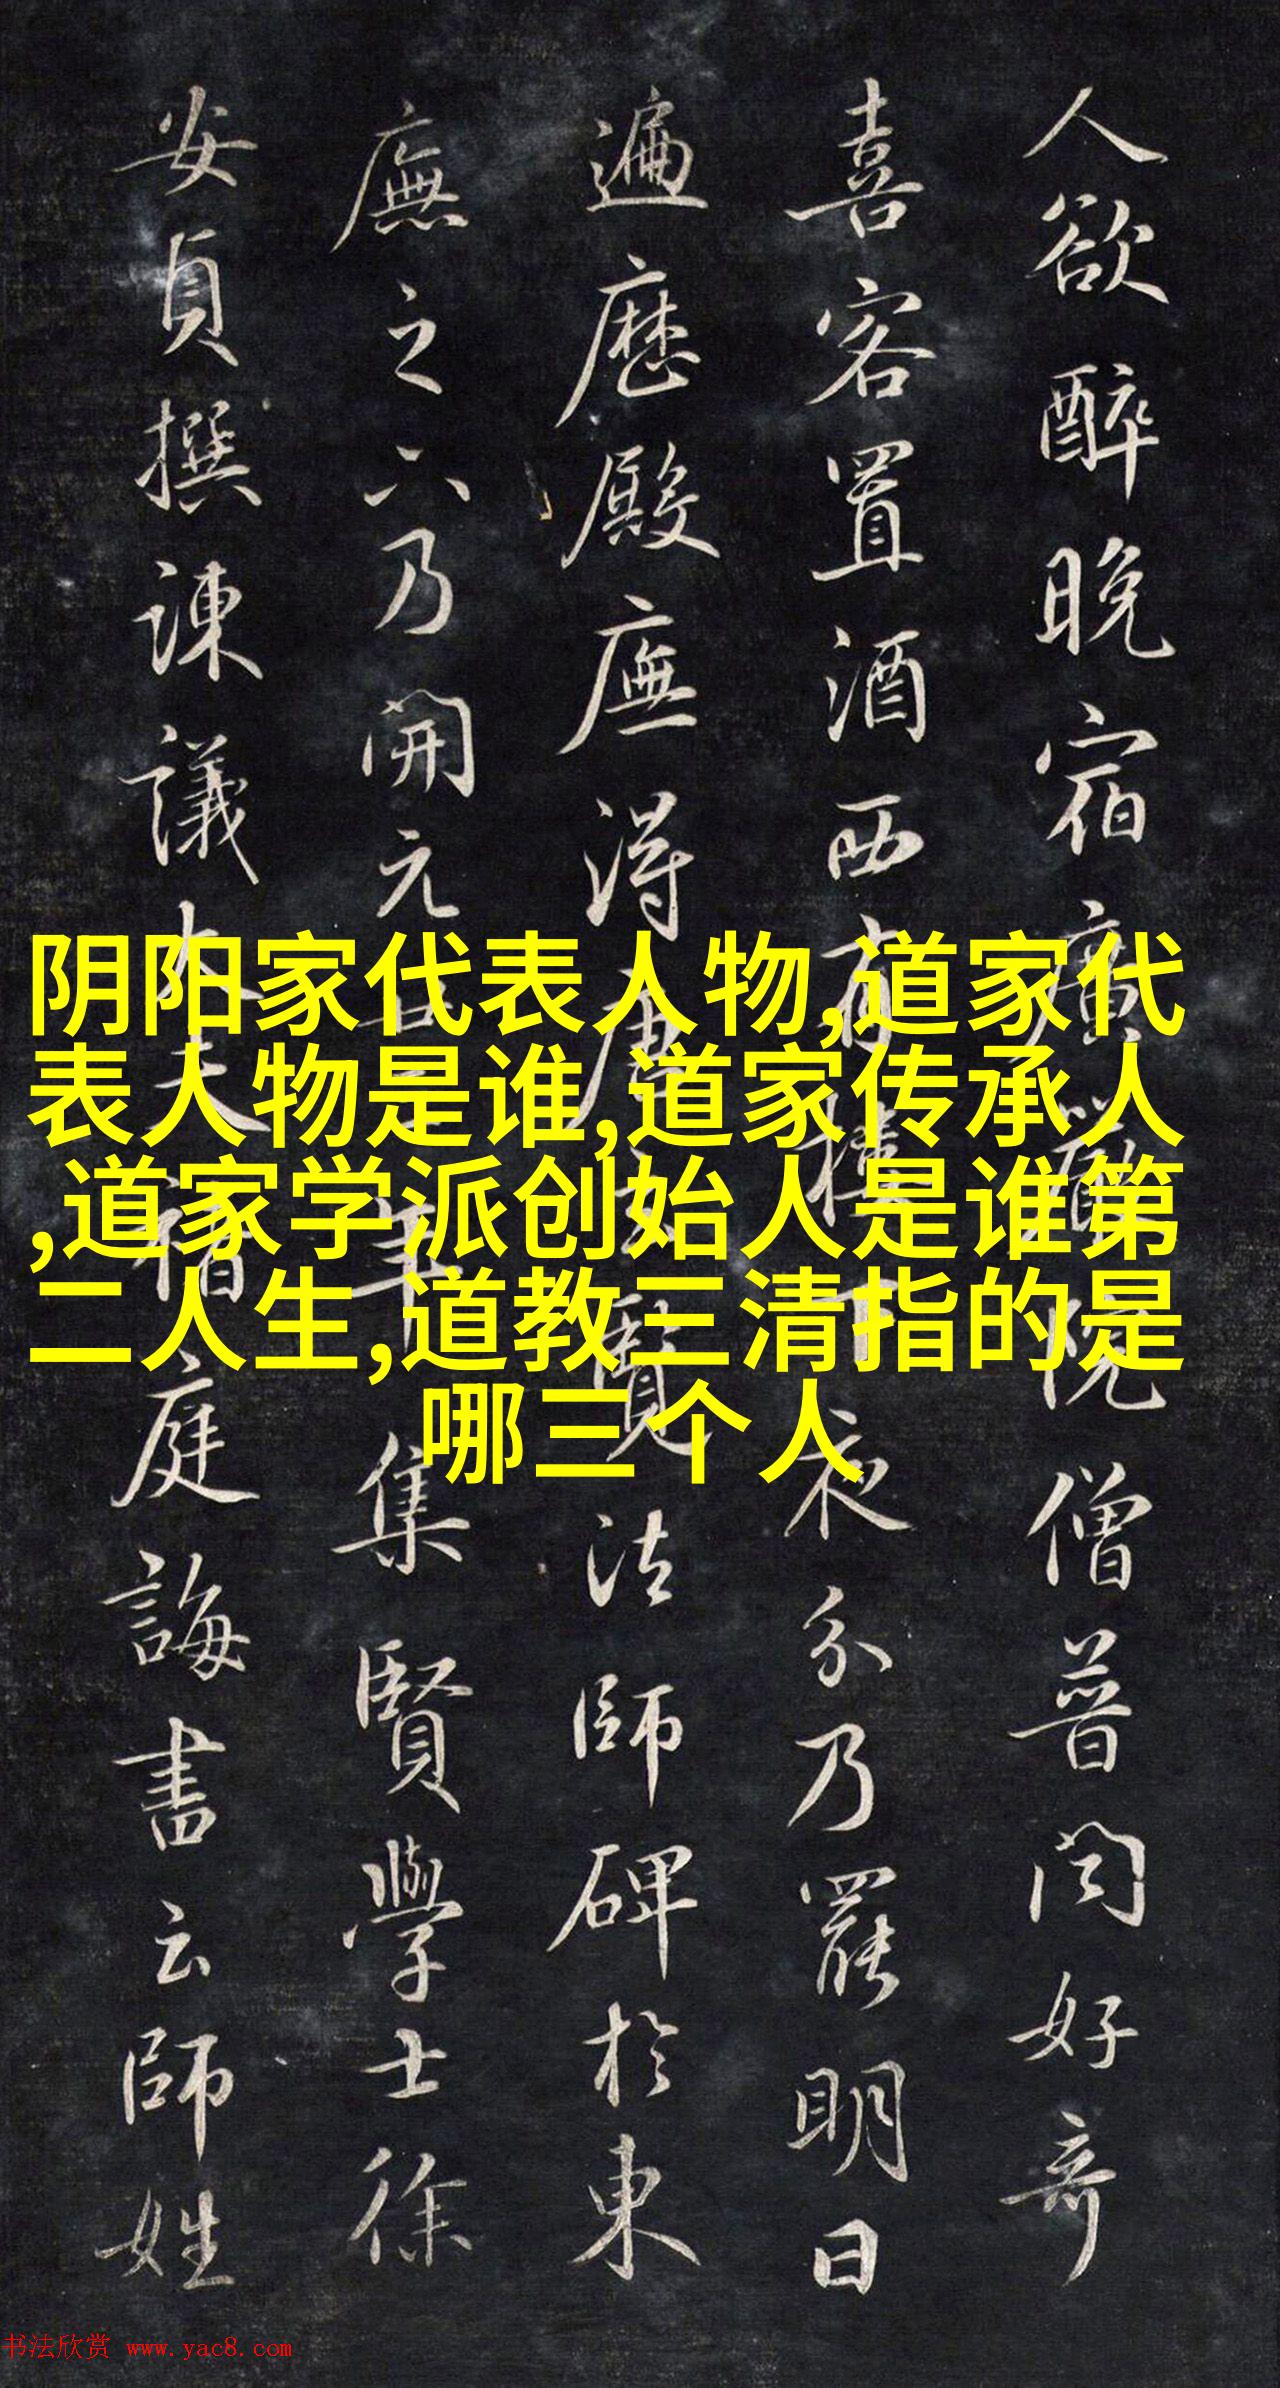 人欲醉晚宿廣嚴院僧普闻好奇
喜客置酒西夜分乃罷明日
遍歷殿廡得唐法師碑於東
廡之下乃開元集賢學士徐
安貞撰諫議大夫褚庭誨書云師姓
阴阳家代表人物,道家代
表人物是谁,道家传承人
,道家学派创始人是谁第
二人生,道教三清指的是
哪三个人
书法欣赏 www.yac8.com